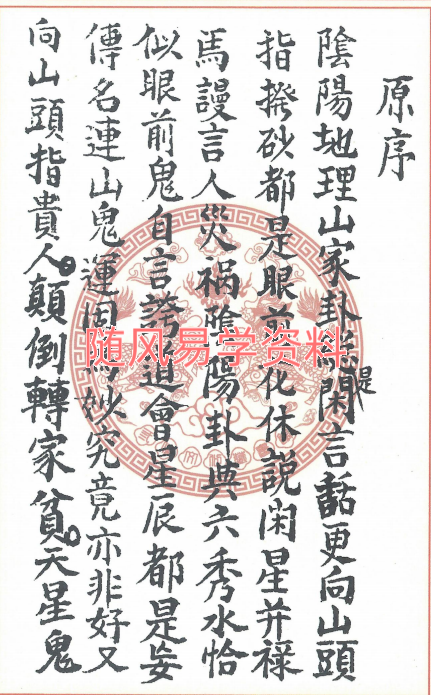 原序
陰陽地理山家卦總是閑言語更向山頭
指撥砂都是眼前花休說閑星并祿
馬謾言人災禍陰陽卦與六秀水恰
似眼前鬼自言誇道會星辰都是妄
傳名連山鬼運周爲妙究竟亦非好又
向山頭指貴人顛倒轉家貧天星鬼
随风易学资料